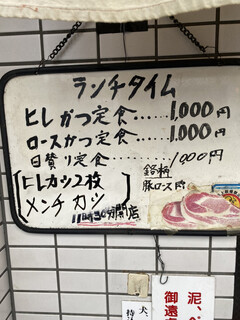 ランチタイム
ヒレかつ定食……1,000円
ロースかつ定食……1,000円
日替り定食……1,000円
ヒレカツ2枚
メンチカツ
銘柄
豚ロース
11時30分開店
犬、
泥、ペ
御遠